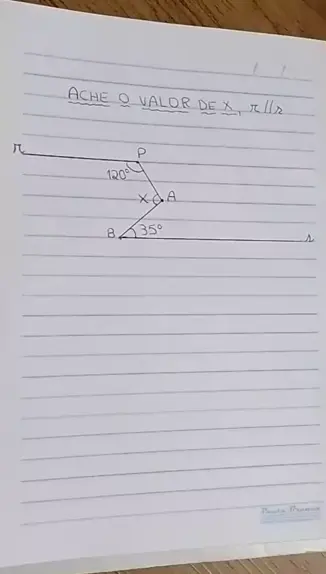 ACHE O VALOR DE X, r//s
r
P
120°
X A
B 35°
s